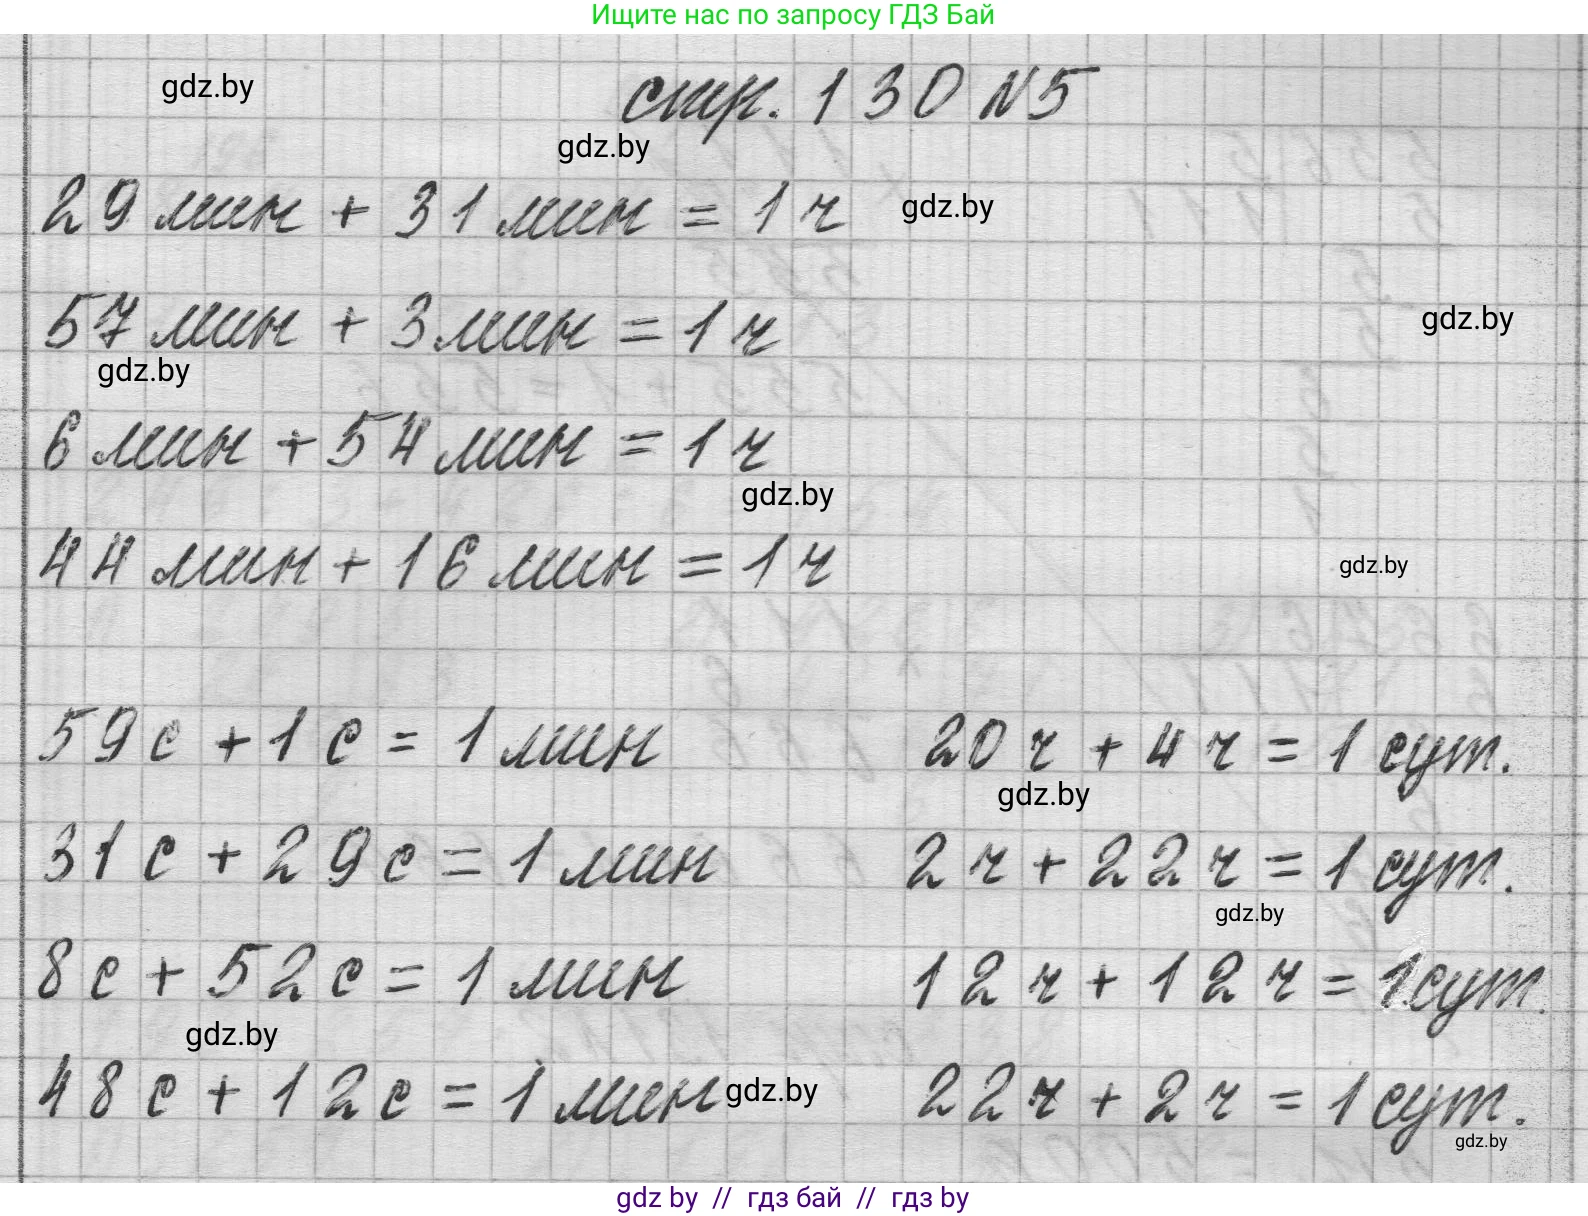 Ищите нас по запросу ГДЗ Бай
gdz.by
стр. 130 №5
gdz.by
29 мин + 31 мин = 1 ч
gdz.by
57 мин + 3 мин = 1 ч
gdz.by
gdz.by
6 мин + 54 мин = 1 ч
gdz.by
44 мин + 16 мин = 1 ч
gdz.by
59 с + 1 с = 1 мин
20 ч + 4 ч = 1 сут.
gdz.by
31 с + 29 с = 1 мин
2 ч + 22 ч = 1 сут.
gdz.by
8 с + 52 с = 1 мин
12 ч + 12 ч = 1 сут.
gdz.by
48 с + 12 с = 1 мин
gdz.by
22 ч + 2 ч = 1 сут.
gdz.by
gdz by // гдз бай // гдз by